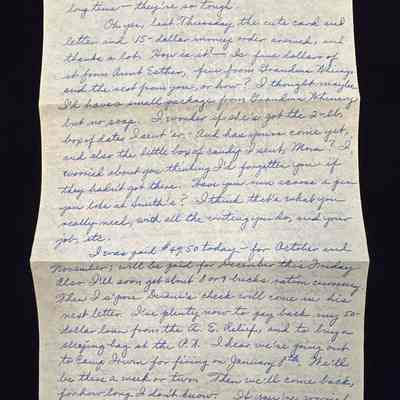 long time — they're so tough.
Oh yes, last Thursday the cute card and
letter and 15-dollar money order arrived, and
thanks a lot. How is it — Is five dollars of
it from Aunt Esther, five from Grandma
and the rest from you, or how? I thought maybe
I'd have a small package from Grandma
but no soap. I wonder if she's got the 2-lb.
box of dates I sent 'er. And has yours come yet,
and also the little box of candy I sent, Mom? I
worried about you thinking I'd forgotten you if
they hadn't got there. Have you ever a pen
you like at Smith's? I think that's what you
really need, with all the writing you do, and your
job, etc.
I was paid today — for October and
November; will be paid for December this Friday
also. I'll soon get about 8 or 9 bucks ration currency.
Then I s'pose check will come in his
next letter. I've plenty now to pay back my 50-
dollar loan from the A. E. Relief, and to buy a
sleeping-bag at the P.X. I hear we're going out
to Camp Irwin for firing on January 8th. We'll
be there a week or two. Then we'll come back,
for how long I don't know. If you're worried